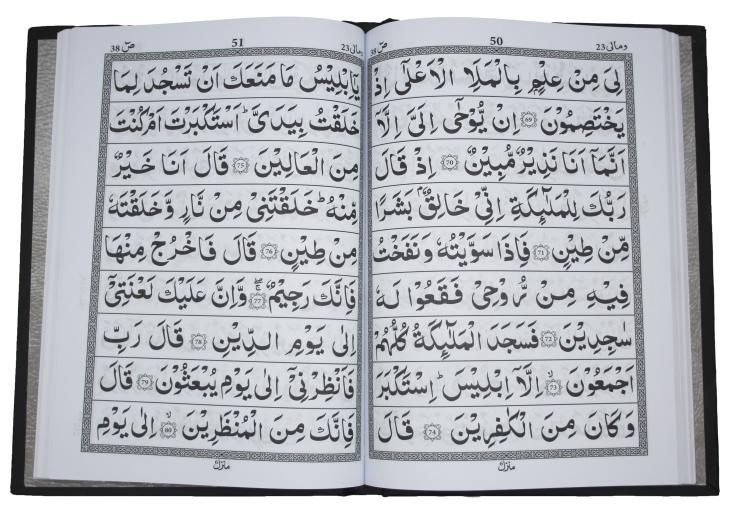 ومالی 23
50
صٓ 38
لِیَ مِنْ عِلْمٍۭ بِالْمَلَاِ الْاَعْلٰۤی اِذْ
یَخْتَصِمُوْنَ ﴿69﴾ اِنْ یُّوْحٰۤی اِلَیَّ اِلَّاۤ
اَنَّمَاۤ اَنَا نَذِیْرٌ مُّبِیْنٌ ﴿70﴾ اِذْ قَالَ
رَبُّكَ لِلْمَلٰٓىِٕكَةِ اِنِّیْ خَالِقٌۢ بَشَرًا
مِّنْ طِیْنٍ ﴿71﴾ فَاِذَا سَوَّیْتُهٗ وَ نَفَخْتُ
فِیْهِ مِنْ رُّوْحِیْ فَقَعُوْا لَهٗ
سٰجِدِیْنَ ﴿72﴾ فَسَجَدَ الْمَلٰٓىِٕكَةُ كُلُّهُمْ
اَجْمَعُوْنَ ﴿73﴾ اِلَّاۤ اِبْلِیْسَ ؕ اِسْتَكْبَرَ
وَ كَانَ مِنَ الْكٰفِرِیْنَ ﴿74﴾ قَالَ
منزل
صٓ 38
51
ومالی 23
یٰۤاِبْلِیْسُ مَا مَنَعَكَ اَنْ تَسْجُدَ لِمَا
خَلَقْتُ بِیَدَیَّ ؕ اَسْتَكْبَرْتَ اَمْ كُنْتَ
مِنَ الْعَالِیْنَ ﴿75﴾ قَالَ اَنَا خَیْرٌ
مِّنْهُ ؕ خَلَقْتَنِیْ مِنْ نَّارٍ وَّ خَلَقْتَهٗ
مِنْ طِیْنٍ ﴿76﴾ قَالَ فَاخْرُجْ مِنْهَا
فَاِنَّكَ رَجِیْمٌ ﴿77﴾ وَّ اِنَّ عَلَیْكَ لَعْنَتِیْۤ
اِلٰی یَوْمِ الدِّیْنِ ﴿78﴾ قَالَ رَبِّ
فَاَنْظِرْنِیْۤ اِلٰی یَوْمِ یُبْعَثُوْنَ ﴿79﴾ قَالَ
فَاِنَّكَ مِنَ الْمُنْظَرِیْنَ ﴿80﴾ اِلٰی یَوْمِ
منزل